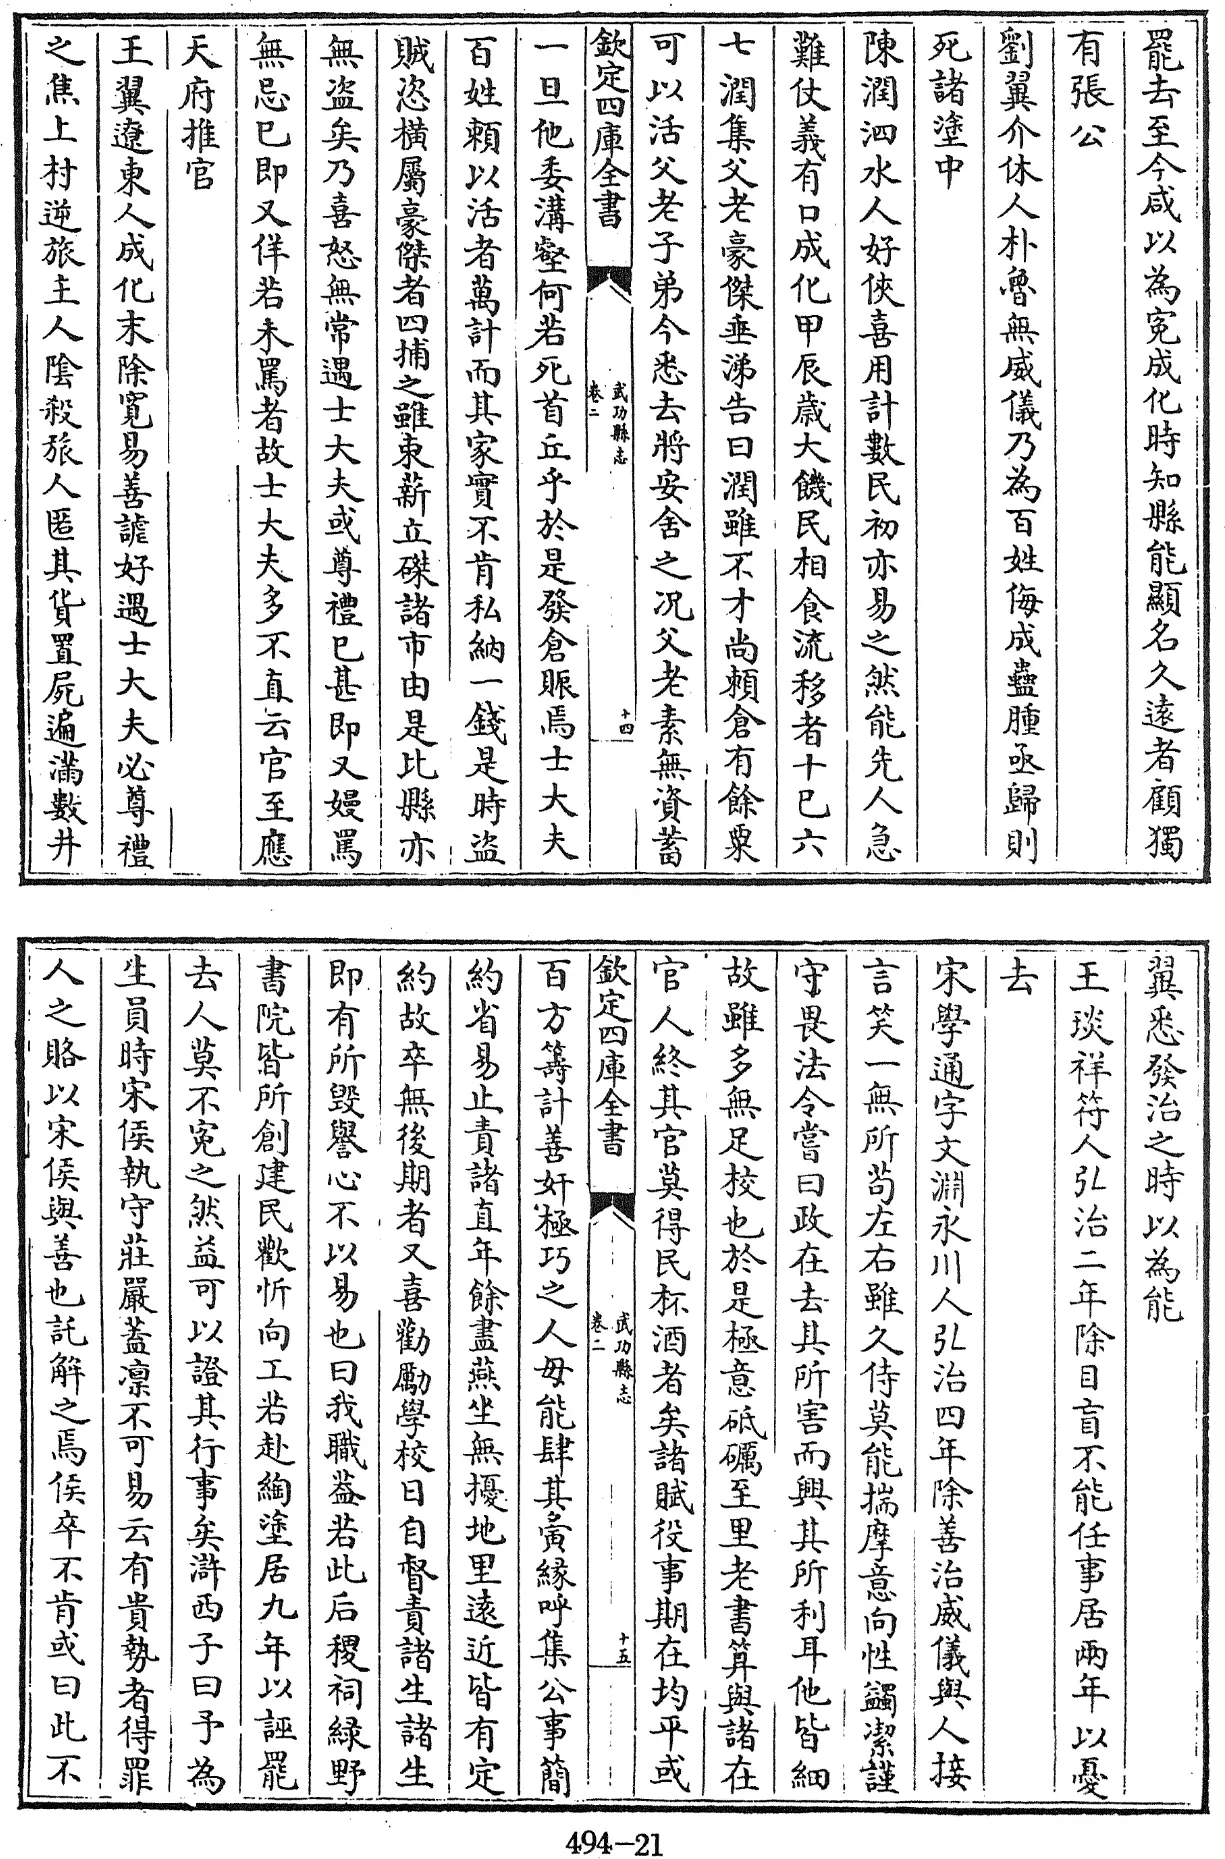 罷去至今咸以為寃成化時知縣能顯名久遠者顧獨
有張公
劉翼介休人朴魯無威儀乃為百姓侮成蠱腫亟歸則
死諸塗中
陳潤泗水人好俠喜用計數民初亦易之然能先人急
難仗義有口成化甲辰歳大饑民相食流移者十已六
七潤集父老豪傑垂涕告曰潤雖不才尚頼倉有餘粟
可以活父老子弟今悉去將安舍之况父老素無資蓄
欽定四庫全書
武功縣志
卷二
十四
一旦他委溝壑何若死首丘乎於是發倉賑焉士大夫
百姓頼以活者萬計而其家實不肯私納一錢是時盜
賊恣横屬豪傑者四捕之雖束薪立磔諸市由是比縣亦
無盜矣乃喜怒無常遇士大夫或尊禮已甚即又嫚罵
無忌已即又佯若未罵者故士大夫多不直云官至應
天府推官
王翼遼東人成化末除寛易善謔好遇士大夫必尊禮
之焦上村逆旅主人陰殺旅人匿其貨置屍遍滿數井
翼悉發治之時以為能
王琰祥符人弘治二年除目盲不能任事居兩年以憂
去
宋學通字文淵永川人弘治四年除善治威儀與人接
言笑一無所苟左右雖久侍莫能揣摩意向性蠲潔謹
守畏法令嘗曰政在去其所害而興其所利耳他皆細
故雖多無足校也於是極意砥礪至里老書算與諸在
官人終其官莫得民杯酒者矣諸賦役事期在均平或
欽定四庫全書
武功縣志
卷二
十五
百方籌計善奸極巧之人毋能肆其夤縁呼集公事簡
約省易止責諸直年餘盡燕坐無擾地里遠近皆有定
約故卒無後期者又喜勸勵學校日自督責諸生諸生
即有所毀譽心不以易也曰我職葢若此后稷祠緑野
書院皆所創建民歡忻向工若赴綯塗居九年以誣罷
去人莫不寃之然益可以證其行事矣滸西子曰予為
生員時宋侯執守莊嚴葢凛不可易云有貴勢者得罪
人之賂以宋侯與善也託解之焉侯卒不肯或曰此不
494-21